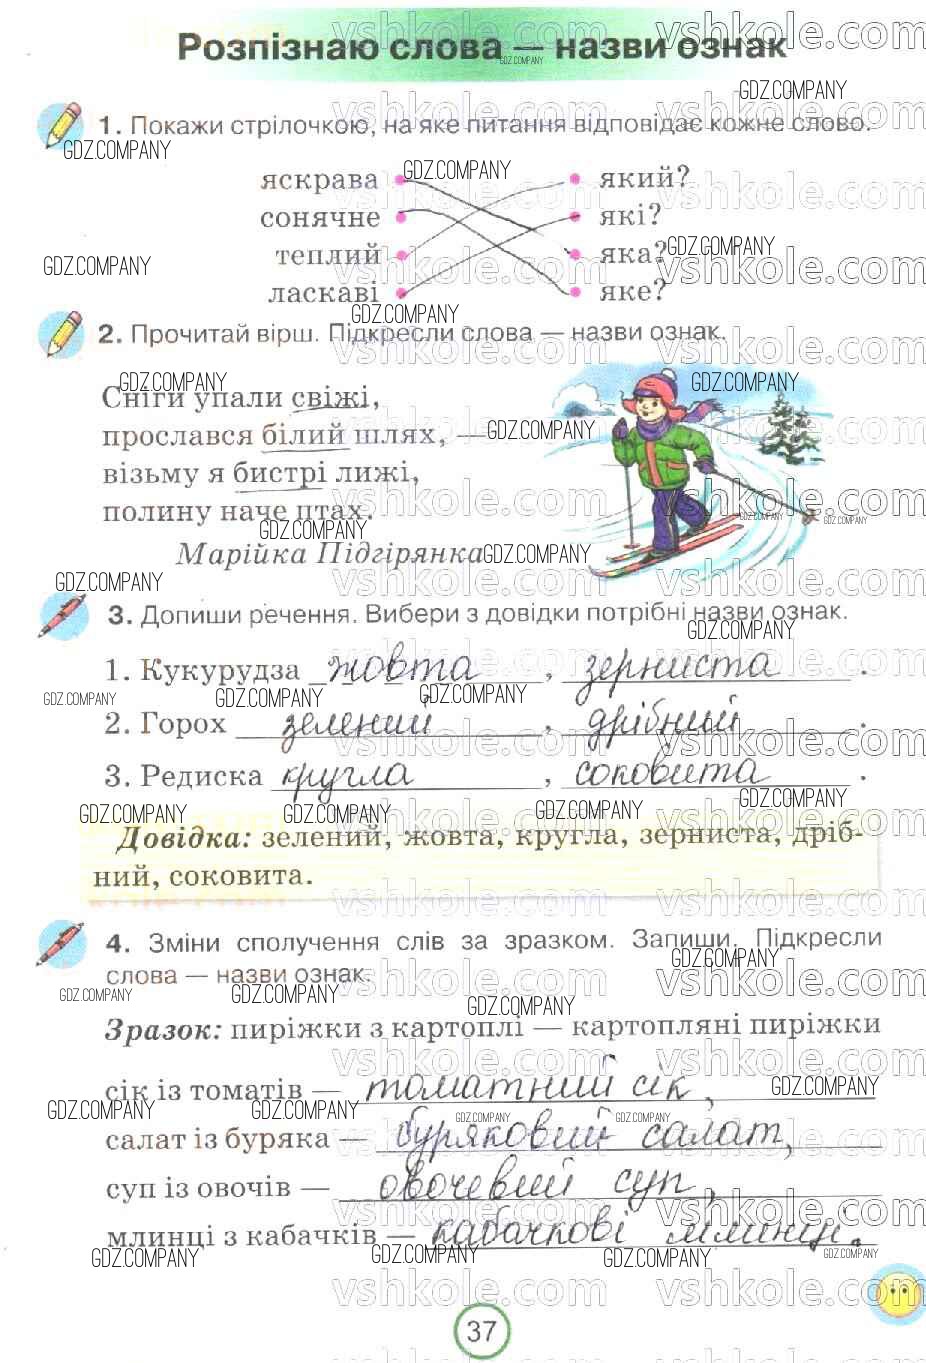 Розпізнаю слова — назви ознак
1. Покажи стрілочкою, на яке питання відповідає кожне слово.
яскрава який?
сонячне які?
теплий яка?
ласкаві яке?
2. Прочитай вірш. Підкресли слова — назви ознак.
Сніги упали свіжі,
прослався білий шлях, —
візьму я бистрі лижі,
полину наче птах.
Марійка Підгірянка
3. Допиши речення. Вибери з довідки потрібні назви ознак.
1. Кукурудза жовта, зерниста.
2. Горох зелений, дрібний.
3. Редиска кругла, соковита.
Довідка: зелений, жовта, кругла, зерниста, дріб-
ний, соковита.
4. Зміни сполучення слів за зразком. Запиши. Підкресли
слова — назви ознак.
Зразок: пиріжки з картоплі — картопляні пиріжки
сік із томатів — томатний сік,
салат із буряка — буряковий салат,
суп із овочів — овочевий суп,
млинці з кабачків — кабачкові млинці.
37
vshkole.com
GDZ.COMPANY